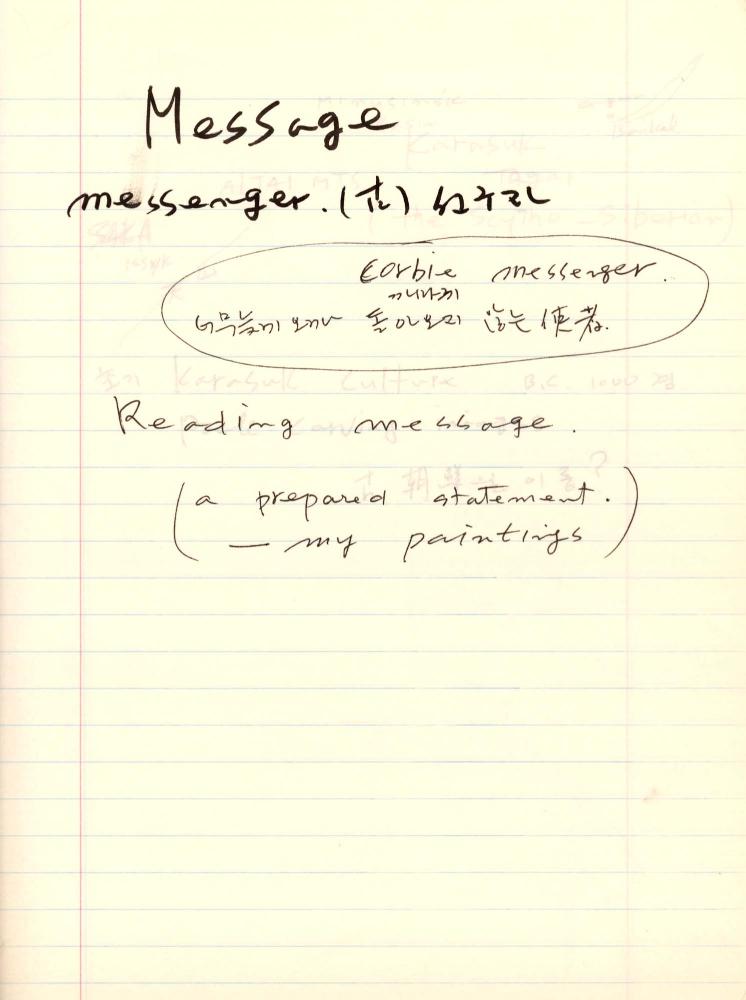 Message
messenger. (古) 선구자
corbie messenger.
까마귀
너무 늦게 오거나 돌아오지 않는 使者.
Reading message.
(a prepared statement.
— my paintings)